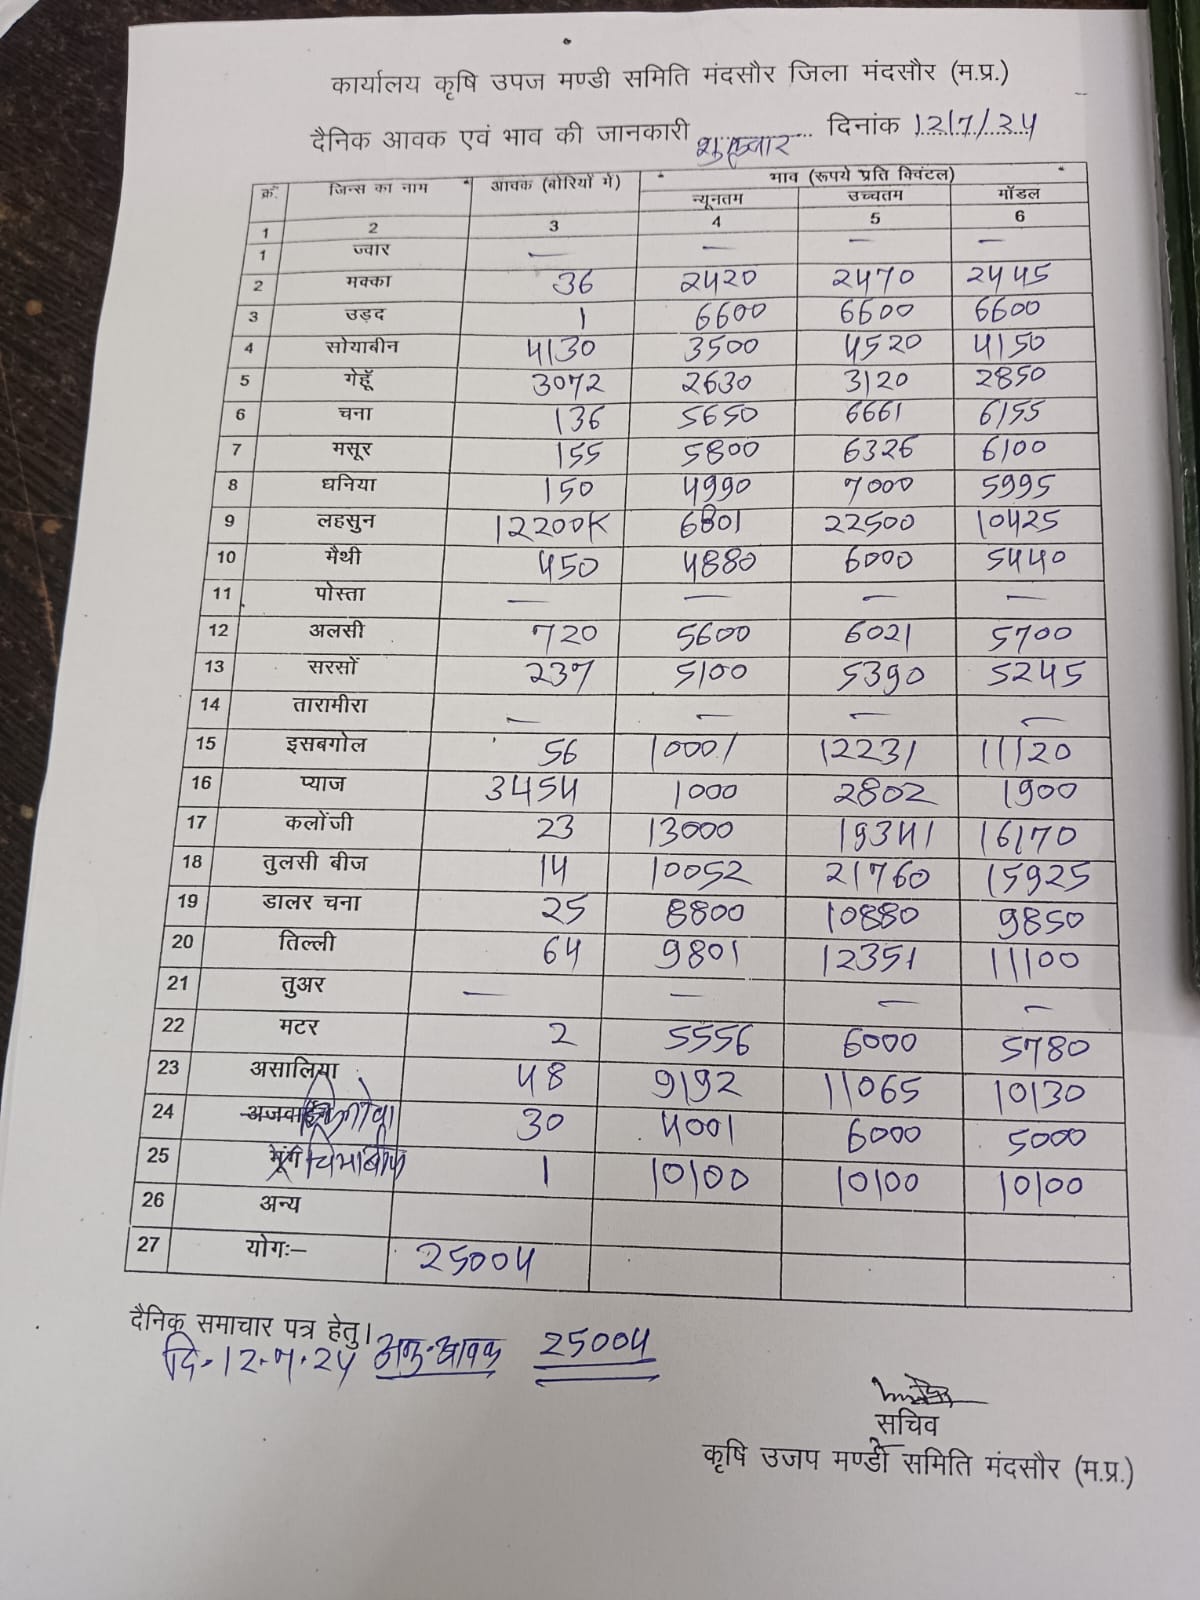 कार्यालय कृषि उपज मण्डी समिति मंदसौर जिला मंदसौर (म.प्र.)
दैनिक आवक एवं भाव की जानकारी शुक्रवार दिनांक 12/7/24
क्रं. जिन्स का नाम आवक (बोरियों में) भाव (रूपये प्रति क्विंटल)
न्यूनतम उच्चतम मॉडल
1 2 3 4 5 6
1 ज्वार — — — —
2 मक्का 36 2420 2470 2445
3 उड़द 1 6600 6600 6600
4 सोयाबीन 4130 3500 4520 4150
5 गेहूॅ 3072 2630 3120 2850
6 चना 136 5650 6661 6155
7 मसूर 155 5800 6326 6100
8 धनिया 150 4990 7000 5995
9 लहसुन 12200K 6801 22500 10425
10 मैथी 450 4880 6000 5440
11 पोस्ता — — — —
12 अलसी 720 5600 6021 5700
13 सरसों 237 5100 5390 5245
14 तारामीरा — — — —
15 इसबगोल 56 10001 12231 11120
16 प्याज 3454 1000 2802 1900
17 कलोंजी 23 13000 19341 16170
18 तुलसी बीज 14 10052 21760 15925
19 डालर चना 25 8800 10880 9850
20 तिल्ली 64 9801 12351 11100
21 तुअर — — — —
22 मटर 2 5556 6000 5780
23 असालिया 48 9192 11065 10130
24 30 4001 6000 5000
25 मूंग 1 10100 10100 10100
26 अन्य
27 योगः– 25004
दैनिक समाचार पत्र हेतु।
दि-12.7.24 अनु.आवक 25004
सचिव
कृषि उजप मण्डी समिति मंदसौर (म.प्र.)